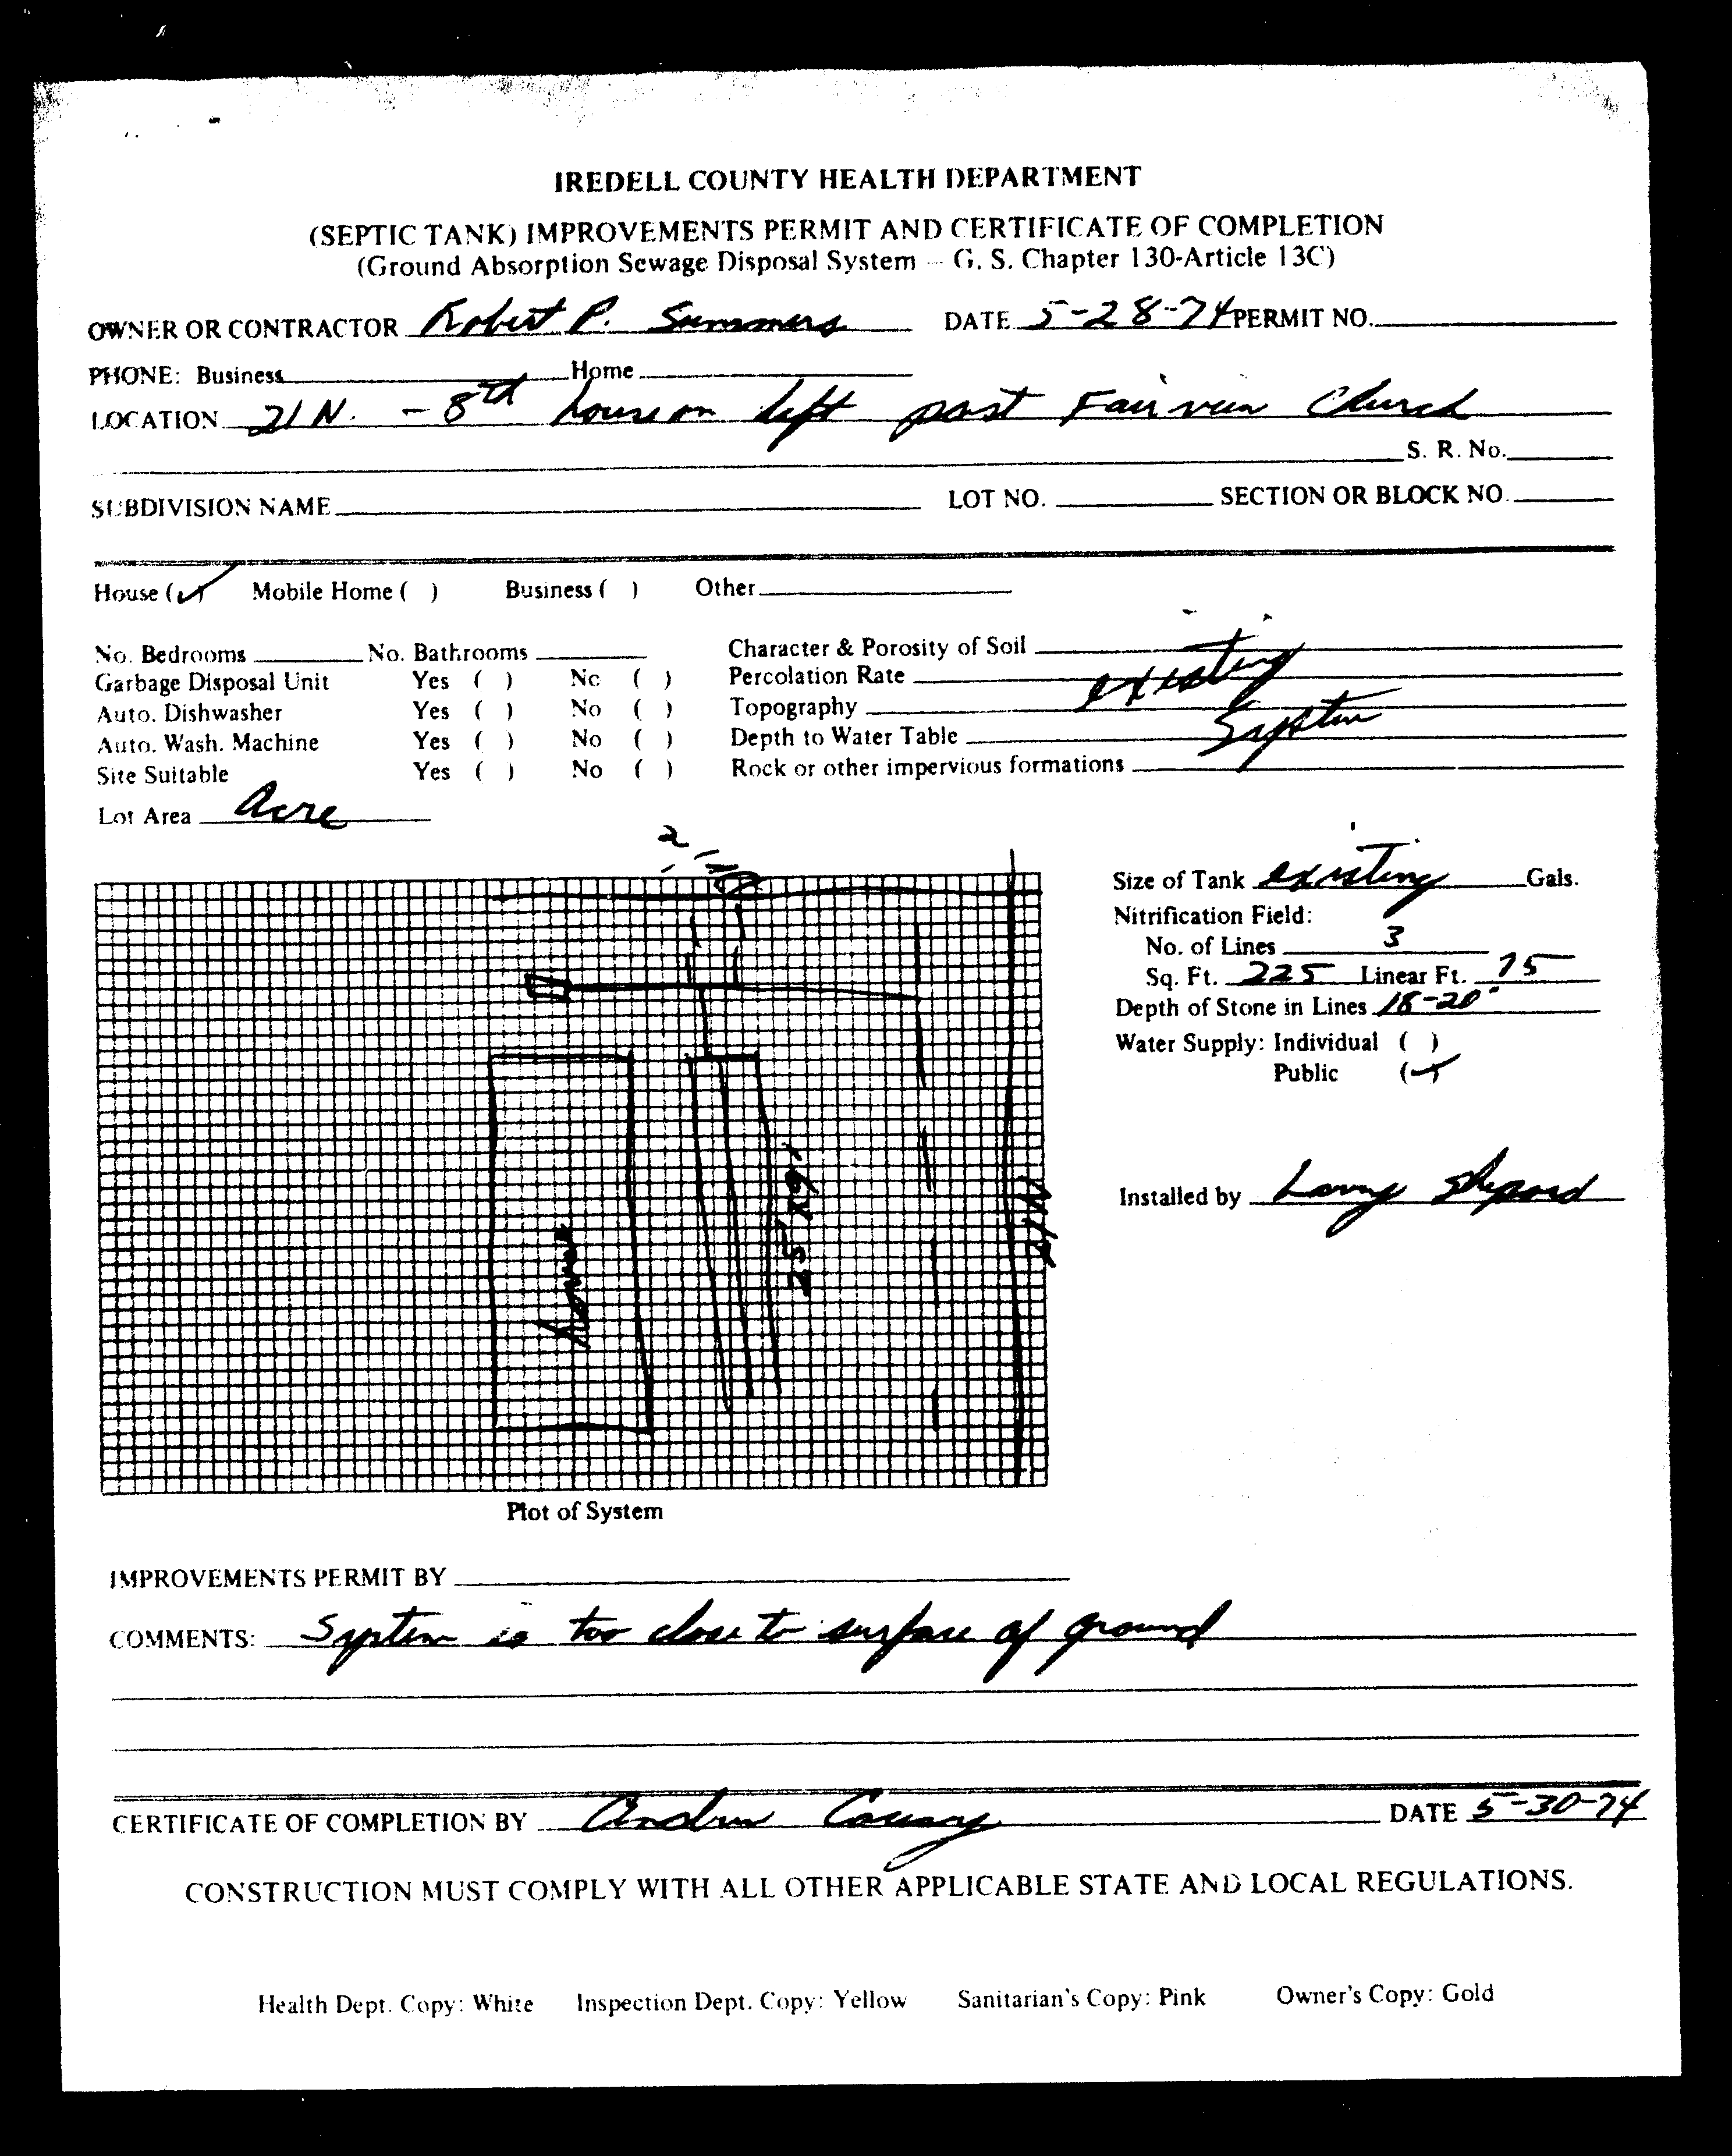 IREDELL COUNTY HEALTH DEPARTMENT
(SEPTIC TANK) IMPROVEMENTS PERMIT AND CERTIFICATE OF COMPLETION
(Ground Absorption Sewage Disposal System - G. S. Chapter 130-Article 13C)
OWNER OR CONTRACTOR Robert P. Summers DATE 5-28-74 PERMIT NO.
PHONE: Business Home
LOCATION 21 N. - 8th house on left past Fairview Church
S. R. No.
SUBDIVISION NAME LOT NO. SECTION OR BLOCK NO.
House (✓) Mobile Home ( ) Business ( ) Other
No. Bedrooms No. Bathrooms Character & Porosity of Soil
Garbage Disposal Unit Yes ( ) No ( ) Percolation Rate existing
Auto. Dishwasher Yes ( ) No ( ) Topography System
Auto. Wash. Machine Yes ( ) No ( ) Depth to Water Table
Site Suitable Yes ( ) No ( ) Rock or other impervious formations
Lot Area Acre
Size of Tank existing Gals.
Nitrification Field:
No. of Lines 3
Sq. Ft. 225 Linear Ft. 75
Depth of Stone in Lines 18-20"
Water Supply: Individual ( )
Public (✓)
Installed by Larry Shepard
house
21 N
Plot of System
IMPROVEMENTS PERMIT BY
COMMENTS: System is too close to surface of ground
CERTIFICATE OF COMPLETION BY Andrew DATE 5-30-74
CONSTRUCTION MUST COMPLY WITH ALL OTHER APPLICABLE STATE AND LOCAL REGULATIONS.
Health Dept. Copy: White Inspection Dept. Copy: Yellow Sanitarian's Copy: Pink Owner's Copy: Gold